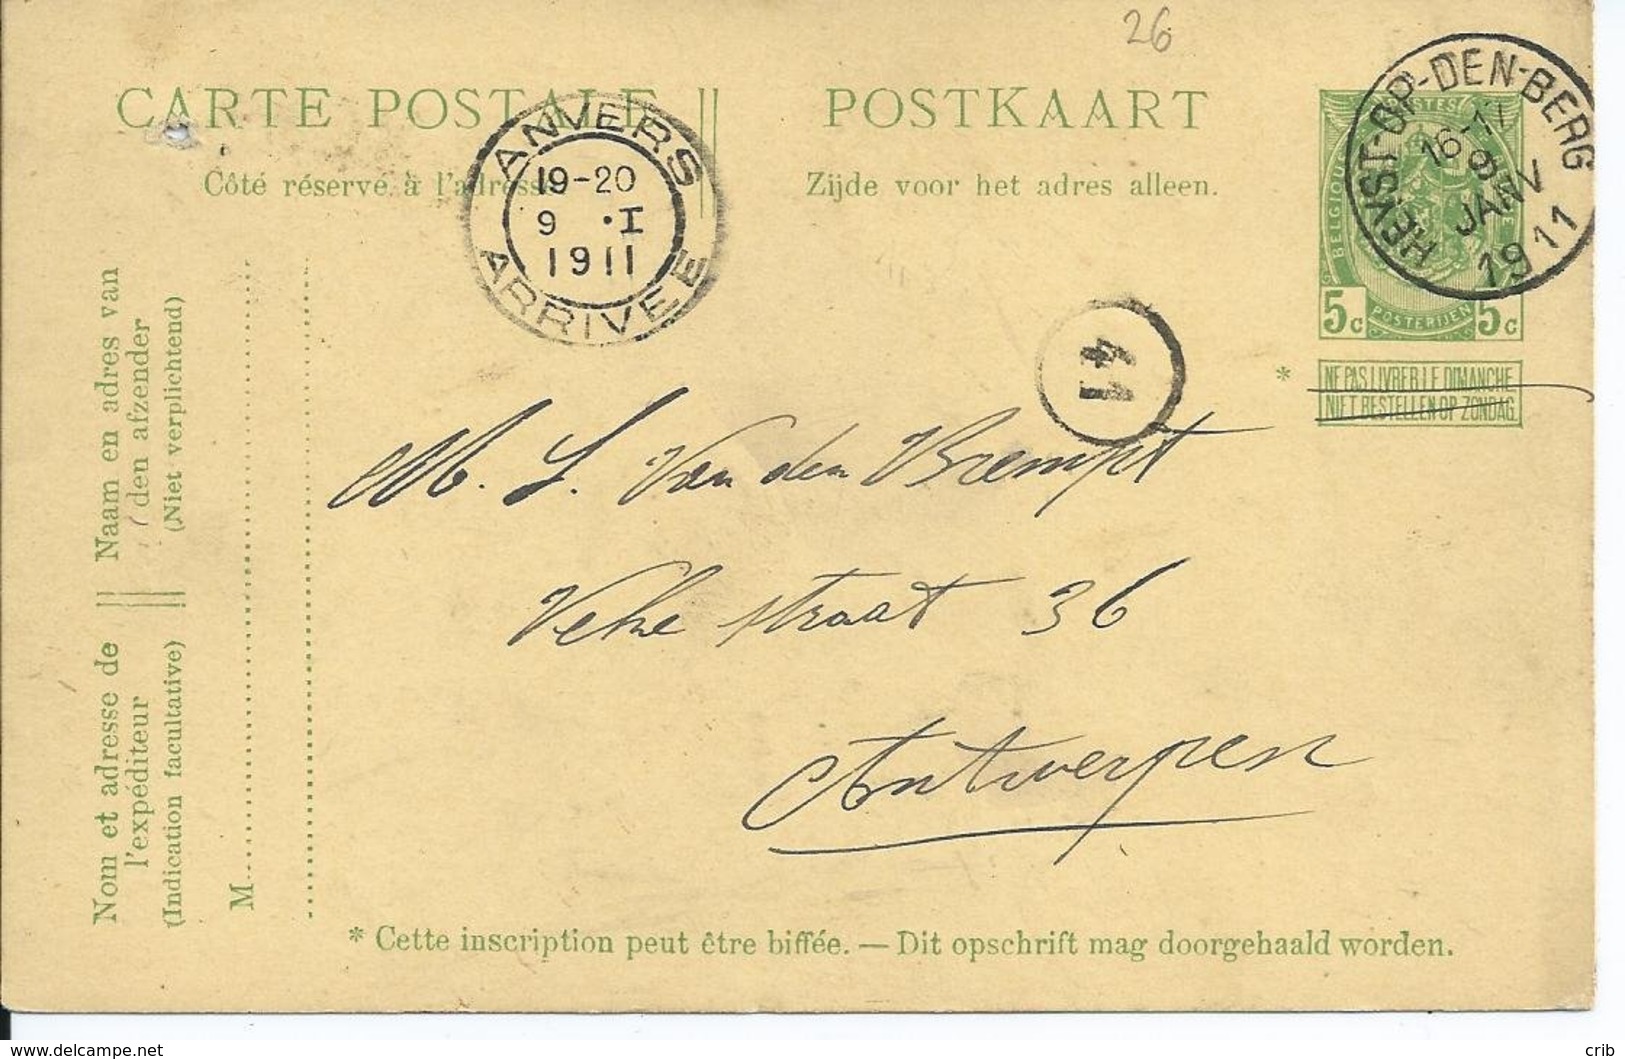 26
CARTE POSTALE
POSTKAART
Côté réservé à l'adresse.
Zijde voor het adres alleen.
ANVERS
19-20
9 .I
1911
ARRIVEE
HEYST-OP-DEN-BERG
16-17
9
JANV
1911
POSTES
BELGIQUE
POSTERIJEN
5c
5c
* NE PAS LIVRER LE DIMANCHE
NIET BESTELLEN OP ZONDAG.
41
M. L. Van den Brempt
Veke straat 36
Antwerpen
Nom et adresse de || Naam en adres van
l'expéditeur || den afzender
(Indication facultative) || (Niet verplichtend)
M
* Cette inscription peut être biffée. — Dit opschrift mag doorgehaald worden.
www.delcampe.net
crib